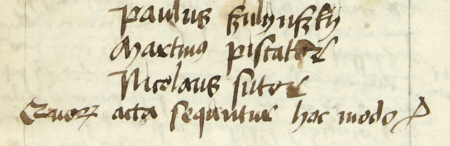 Paulus
Martinus Piscator
Nicolaus sutor
Quorum acta sequuntur hoc modo